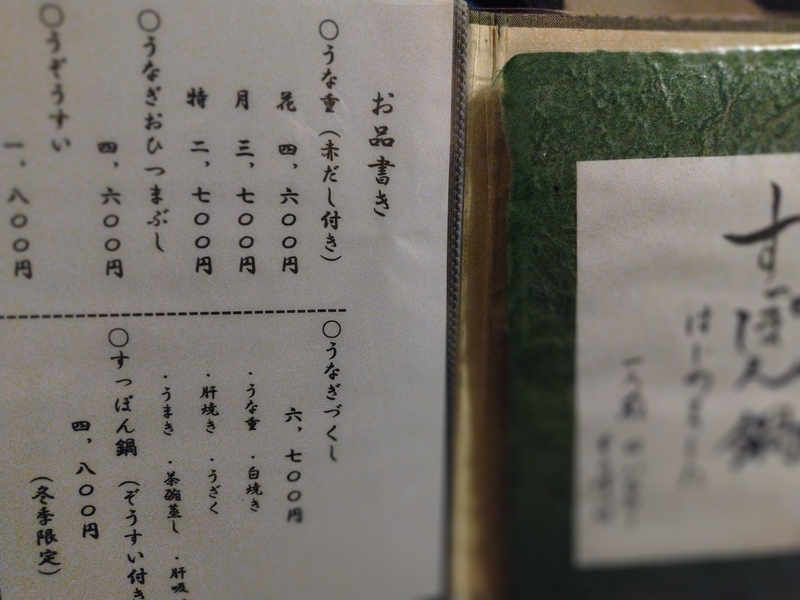 お品書き
○うな重（赤だし付き）
花 四，六〇〇円
月 三，七〇〇円
特 二，七〇〇円
○うなぎおひつまぶし
四，六〇〇円
○うぞうすい
一，八〇〇円
○うなぎづくし
六，七〇〇円
・うな重 ・白焼き
・肝焼き ・うざく
・うまき ・茶碗蒸し ・肝吸
○すっぽん鍋（ぞうすい付き
四，八〇〇円
（冬季限定）
すっぽん鍋
はじめました